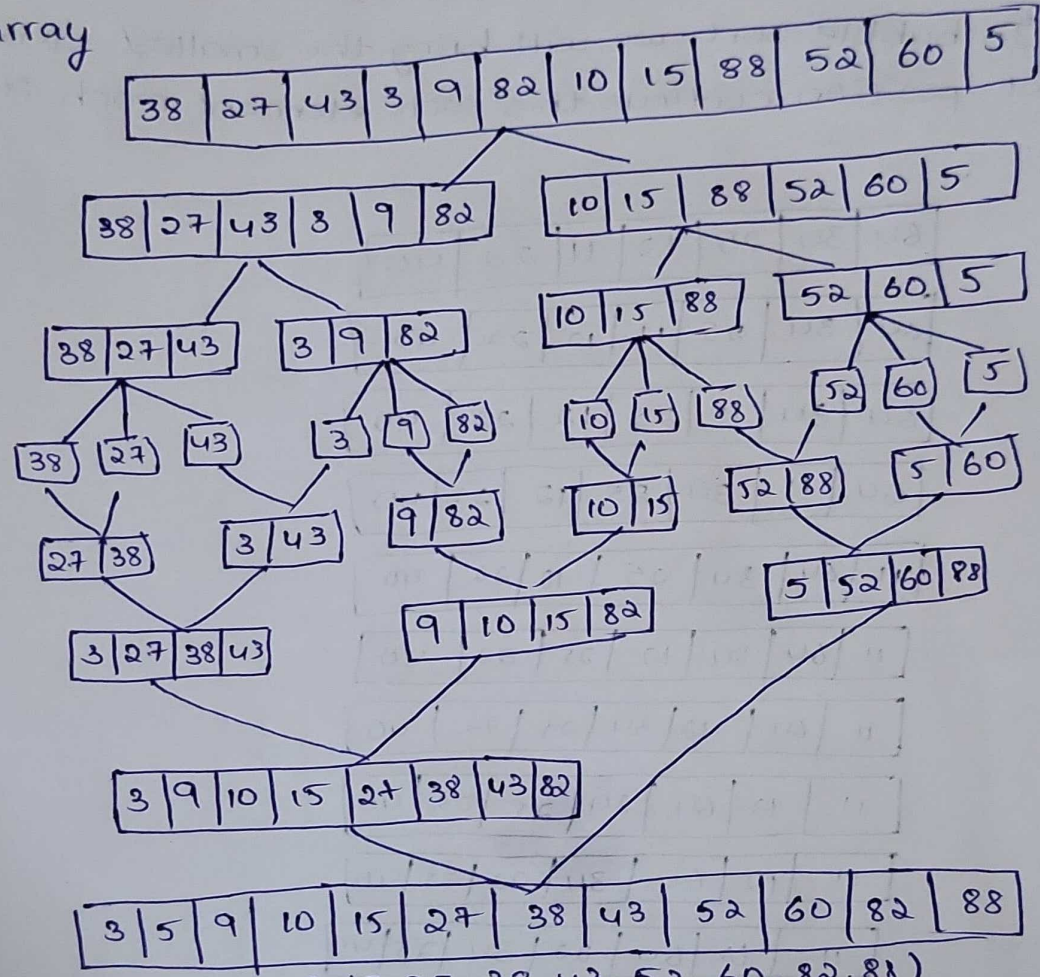 array
38 27 43 3 9 82 10 15 88 52 60 5
38 27 43 3 9 82 10 15 88 52 60 5
38 27 43 3 9 82 10 15 88 52 60 5
38 27 43 3 9 82 10 15 88 52 60 5
27 38 3 43 9 82 10 15 52 88 5 60
3 27 38 43 9 10 15 82 5 52 60 88
3 9 10 15 27 38 43 82
3 5 9 10 15 27 38 43 52 60 82 88
38 43 52 60 82 88)